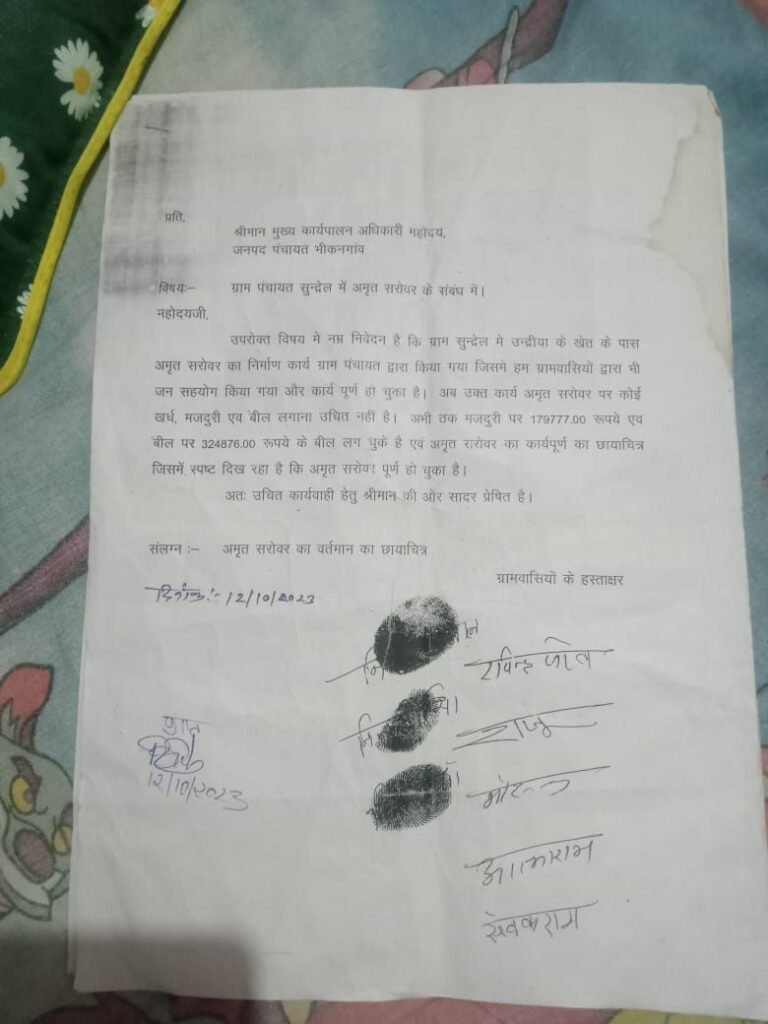 प्रति,
श्रीमान मुख्य कार्यपालन अधिकारी महोदय,
जनपद पंचायत भीकनगांव
विषयः– ग्राम पंचायत सुन्द्रेल में अमृत सरोवर के संबंध में।
महोदयजी,
उपरोक्त विषय मे नम्र निवेदन है कि ग्राम सुन्द्रेल मे उन्द्रीया के खेत के पास
अमृत सरोवर का निर्माण कार्य ग्राम पंचायत द्वारा किया गया जिसमे हम ग्रामवासियों द्वारा भी
जन सहयोग किया गया और कार्य पूर्ण हो चुका है। अब उक्त कार्य अमृत सरोवर पर कोई
खर्ध, मजदुरी एव बील लगाना उचित नहीं है। अभी तक मजदुरी पर 179777.00 रूपये एव
बील पर 324876.00 रूपये के बील लग चुके है एवं अमृत सरोवर का कार्यपूर्ण का छायाचित्र
जिसमें स्पष्ट दिख रहा है कि अमृत सरोवर पूर्ण हो चुका है।
अतः उचित कार्यवाही हेतु श्रीमान की ओर सादर प्रेषित है।
संलग्न :– अमृत सरोवर का वर्तमान का छायाचित्र
ग्रामवासियों के हस्ताक्षर
दिनांक:- 12/10/2023
नि
रविन्द्र
नि
राजु
आत्माराम
सेवकराम
12/10/2023